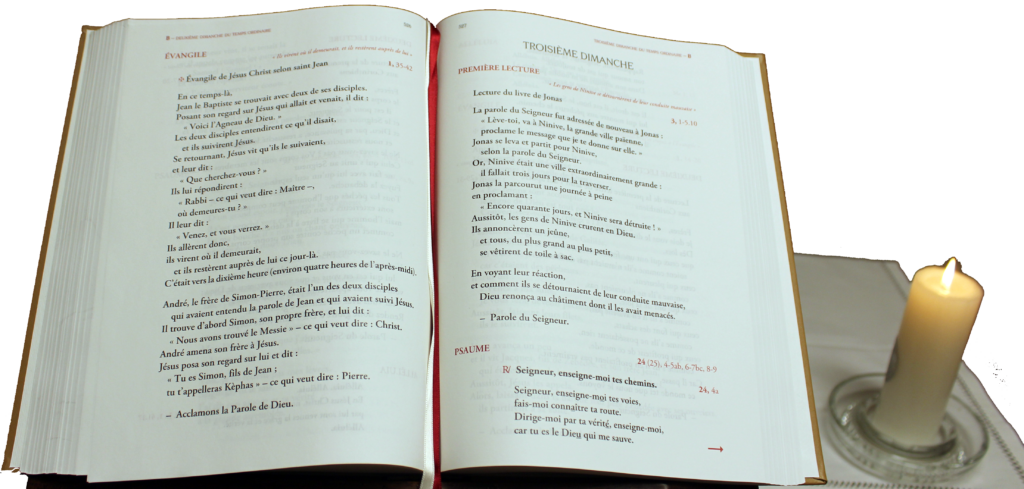 B – DEUXIÈME DIMANCHE DU TEMPS ORDINAIRE
ÉVANGILE
« Ils virent où il demeurait, et ils restèrent auprès de lui »
1, 35-42
✧ Évangile de Jésus Christ selon saint Jean
En ce temps-là,
Jean le Baptiste se trouvait avec deux de ses disciples.
Posant son regard sur Jésus qui allait et venait, il dit :
« Voici l'Agneau de Dieu. »
Les deux disciples entendirent ce qu'il disait,
et ils suivirent Jésus.
Se retournant, Jésus vit qu'ils le suivaient,
et leur dit :
« Que cherchez-vous ? »
Ils lui répondirent :
« Rabbi – ce qui veut dire : Maître –,
où demeures-tu ? »
Il leur dit :
« Venez, et vous verrez. »
Ils allèrent donc,
ils virent où il demeurait,
et ils restèrent auprès de lui ce jour-là.
C'était vers la dixième heure (environ quatre heures de l'après-midi).
André, le frère de Simon-Pierre, était l'un des deux disciples
qui avaient entendu la parole de Jean et qui avaient suivi Jésus.
Il trouve d'abord Simon, son propre frère, et lui dit :
« Nous avons trouvé le Messie » – ce qui veut dire : Christ.
André amena son frère à Jésus.
Jésus posa son regard sur lui et dit :
« Tu es Simon, fils de Jean ;
tu t'appelleras Kèphas » – ce qui veut dire : Pierre.
– Acclamons la Parole de Dieu.
DEUXIÈME DIMANCHE DU TEMPS ORDINAIRE – B
TROISIÈME DIMANCHE
PREMIÈRE LECTURE
« Les gens de Ninive se détournèrent de leur conduite mauvaise »
Lecture du livre de Jonas
3, 1-5.10
La parole du Seigneur fut adressée de nouveau à Jonas :
« Lève-toi, va à Ninive, la grande ville païenne,
proclame le message que je te donne sur elle. »
Jonas se leva et partit pour Ninive,
selon la parole du Seigneur.
Or, Ninive était une ville extraordinairement grande :
il fallait trois jours pour la traverser.
Jonas la parcourut une journée à peine
en proclamant :
« Encore quarante jours, et Ninive sera détruite ! »
Aussitôt, les gens de Ninive crurent en Dieu.
Ils annoncèrent un jeûne,
et tous, du plus grand au plus petit,
se vêtirent de toile à sac.
En voyant leur réaction,
et comment ils se détournaient de leur conduite mauvaise,
Dieu renonça au châtiment dont il les avait menacés.
– Parole du Seigneur.
PSAUME
24 (25), 4-5ab, 6-7bc, 8-9
℟ Seigneur, enseigne-moi tes chemins.
24, 4a
Seigneur, enseigne-moi tes voies,
fais-moi connaître ta route.
Dirige-moi par ta vérité, enseigne-moi,
car tu es le Dieu qui me sauve.
→